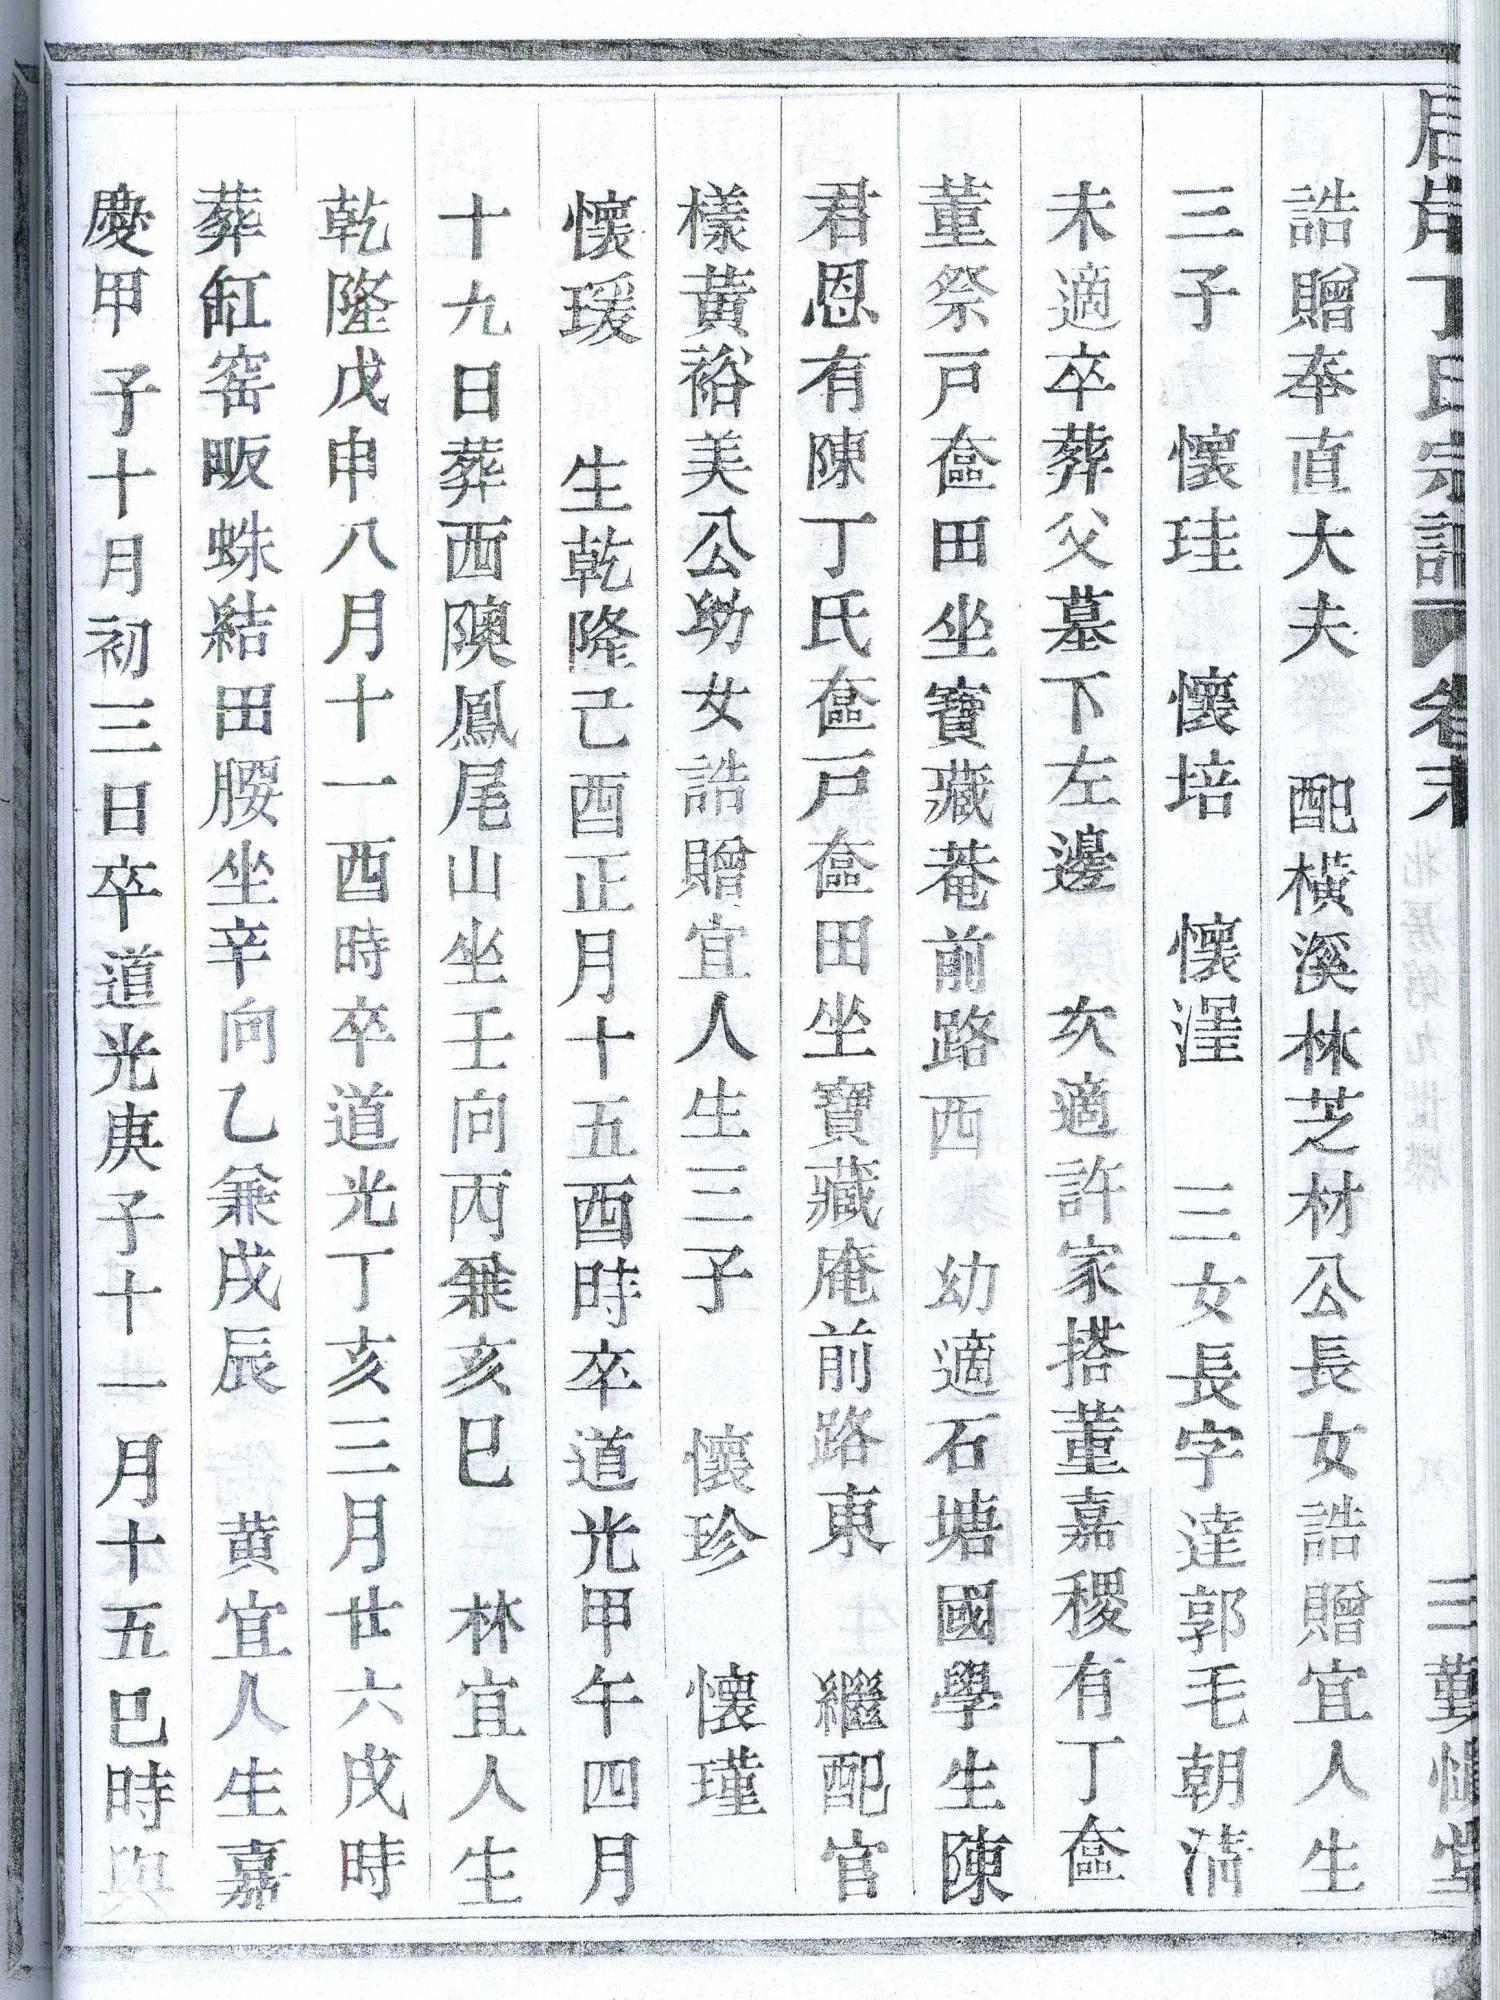 丁氏宗譜 卷末 三 勤慎堂
誥贈奉直大夫 配橫溪林芝材公長女誥贈宜人生
三子 懷珪 懷培 懷湦 三女長字達郭毛朝清
未適卒葬父墓下左邊 次適許家搭董嘉稷有丁奩
董祭戸奩田坐寶藏菴前路西 幼適石塘國學生陳
君恩有陳丁氏奩戸奩田坐寶藏庵前路東 繼配官
樣黃裕美公幼女誥贈宜人生三子 懷珍 懷瑾
懷瑗 生乾隆己酉正月十五酉時卒道光甲午四月
十九日葬西隩鳳尾山坐壬向丙兼亥巳 林宜人生
乾隆戊申八月十一酉時卒道光丁亥三月廿六戌時
葬缸窑畈蛛結田腰坐辛向乙兼戌辰 黄宜人生嘉
慶甲子十月初三日卒道光庚子十一月十五巳時與